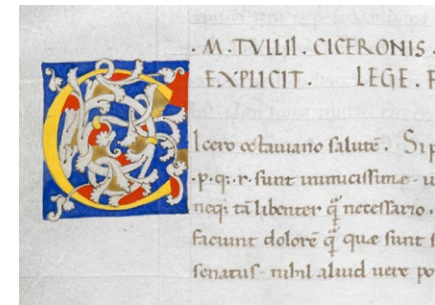 · M · TVLLII · CICERONIS ·
EXPLICIT · LEGE · F
Cicero octauiano salutē · Si p
· p · q; · r · sunt inimicissime · u
neq; tā libenter q̃ necessario ·
faciunt dolorē q̃ quæ sunt s
senatus · nihil aliud uere po